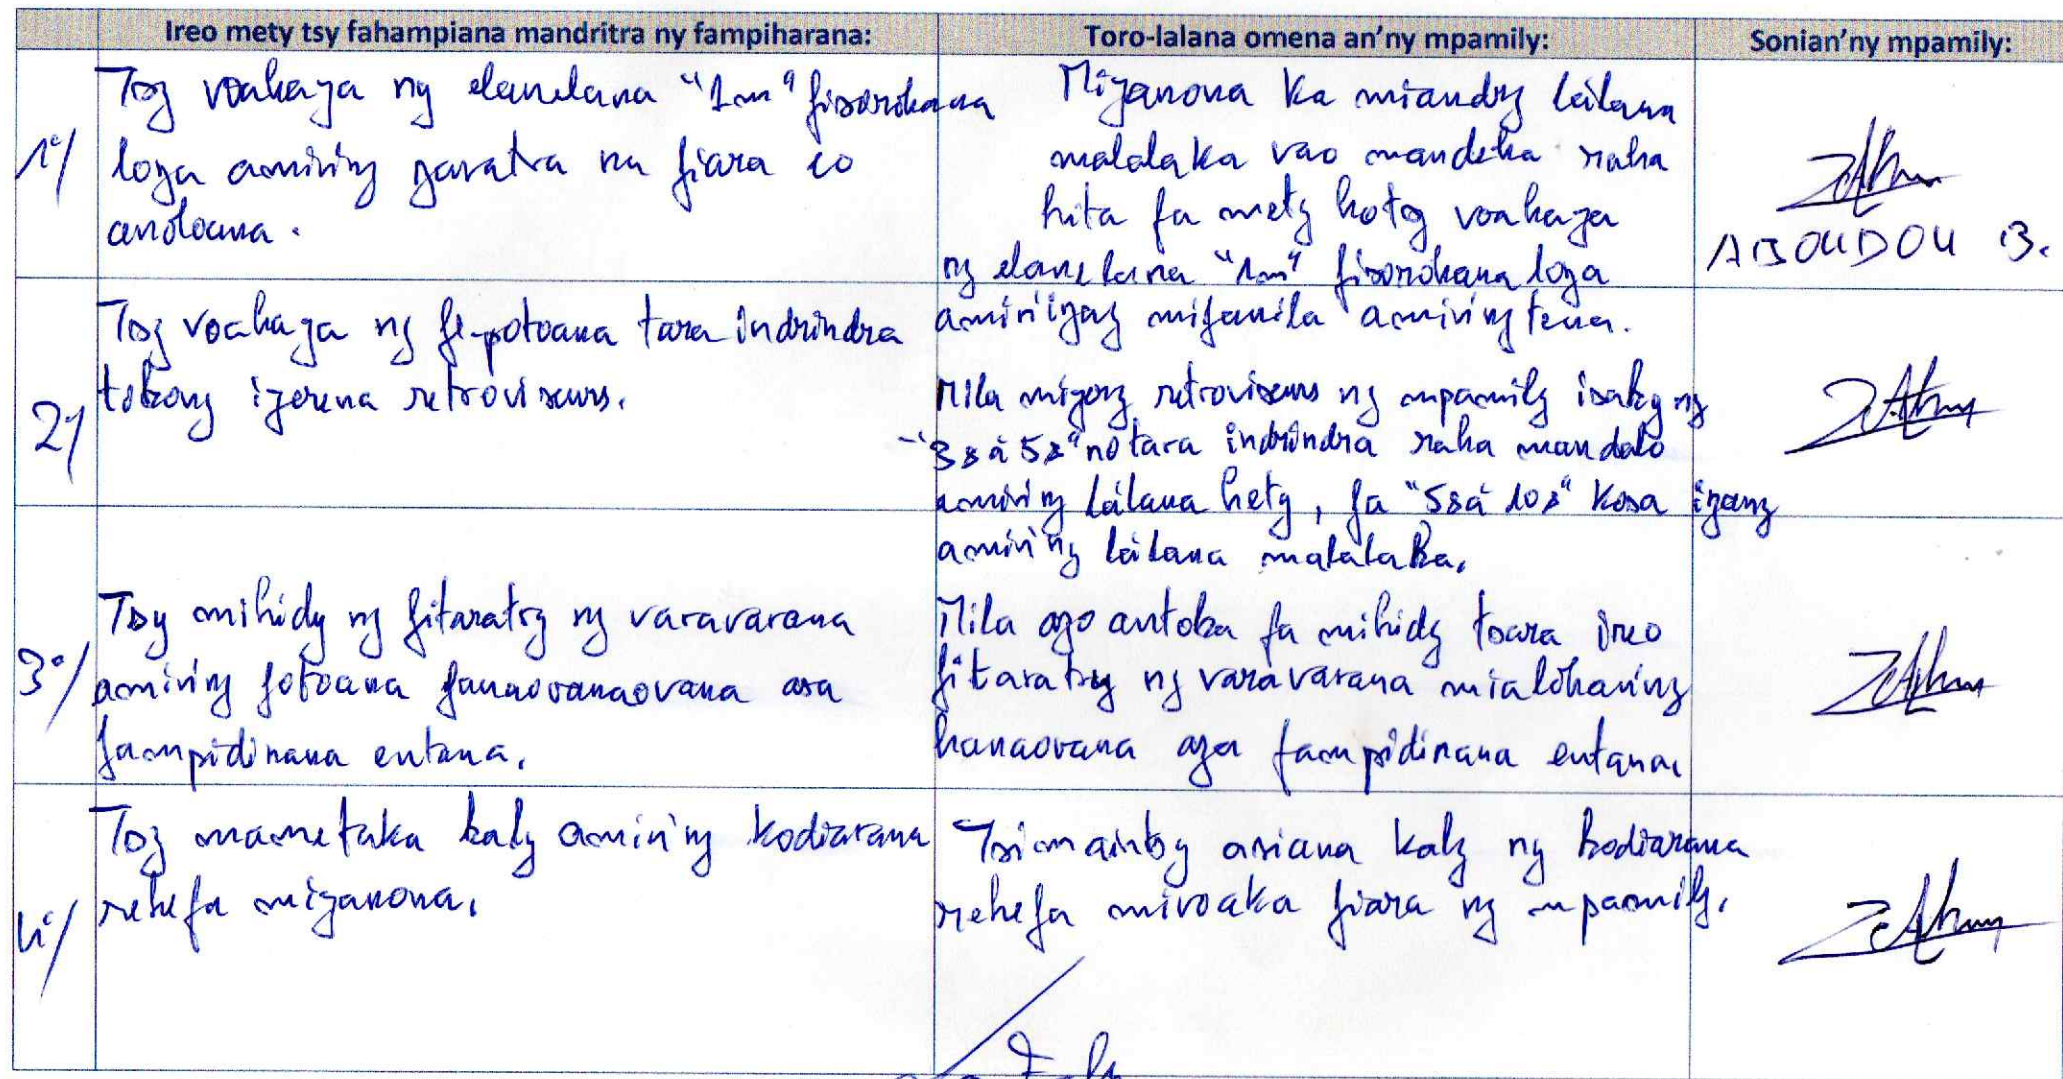 Ireo mety tsy fahampiana mandritra ny fampiharana:
Toro-lalana omena an'ny mpamily:
Sonian'ny mpamily:
1°/
Tsy voahaja ny elanelana "1m" fisorohana
loza amin'ny zavatra na fiara eo
anoloana.
Mijanona ka miandry làlana
malalaka vao mandeha raha
hita fa mety hotsy voahaja
ny elanelana "1m" fisorohana loza
amin'izay mifanila amin'ny tena.
ABOUDOU B.
2°/
Tsy voahaja ny fe-potoana tara indrindra
tokony ijerena retroviseurs.
Mila mijery retroviseurs ny mpamily isaky ny
"3s à 5s" no tara indrindra raha mandalo
amin'ny làlana hety, fa "5s à 10s" kosa izany
amin'ny làlana malalaka.
3°/
Tsy mihidy ny fitaratry ny varavarana
amin'ny fotoana fanaovanaovana asa
fampidinana entana.
Mila azo antoka fa mihidy tsara ireo
fitaratry ny varavarana mialohan'ny
hanaovana asa fampidinana entana.
4°/
Tsy mametaka kaly amin'ny kodiarana
rehefa mijanona.
Tsimaintsy asiana kaly ny kodiarana
rehefa mivoaka fiara ny mpamily.